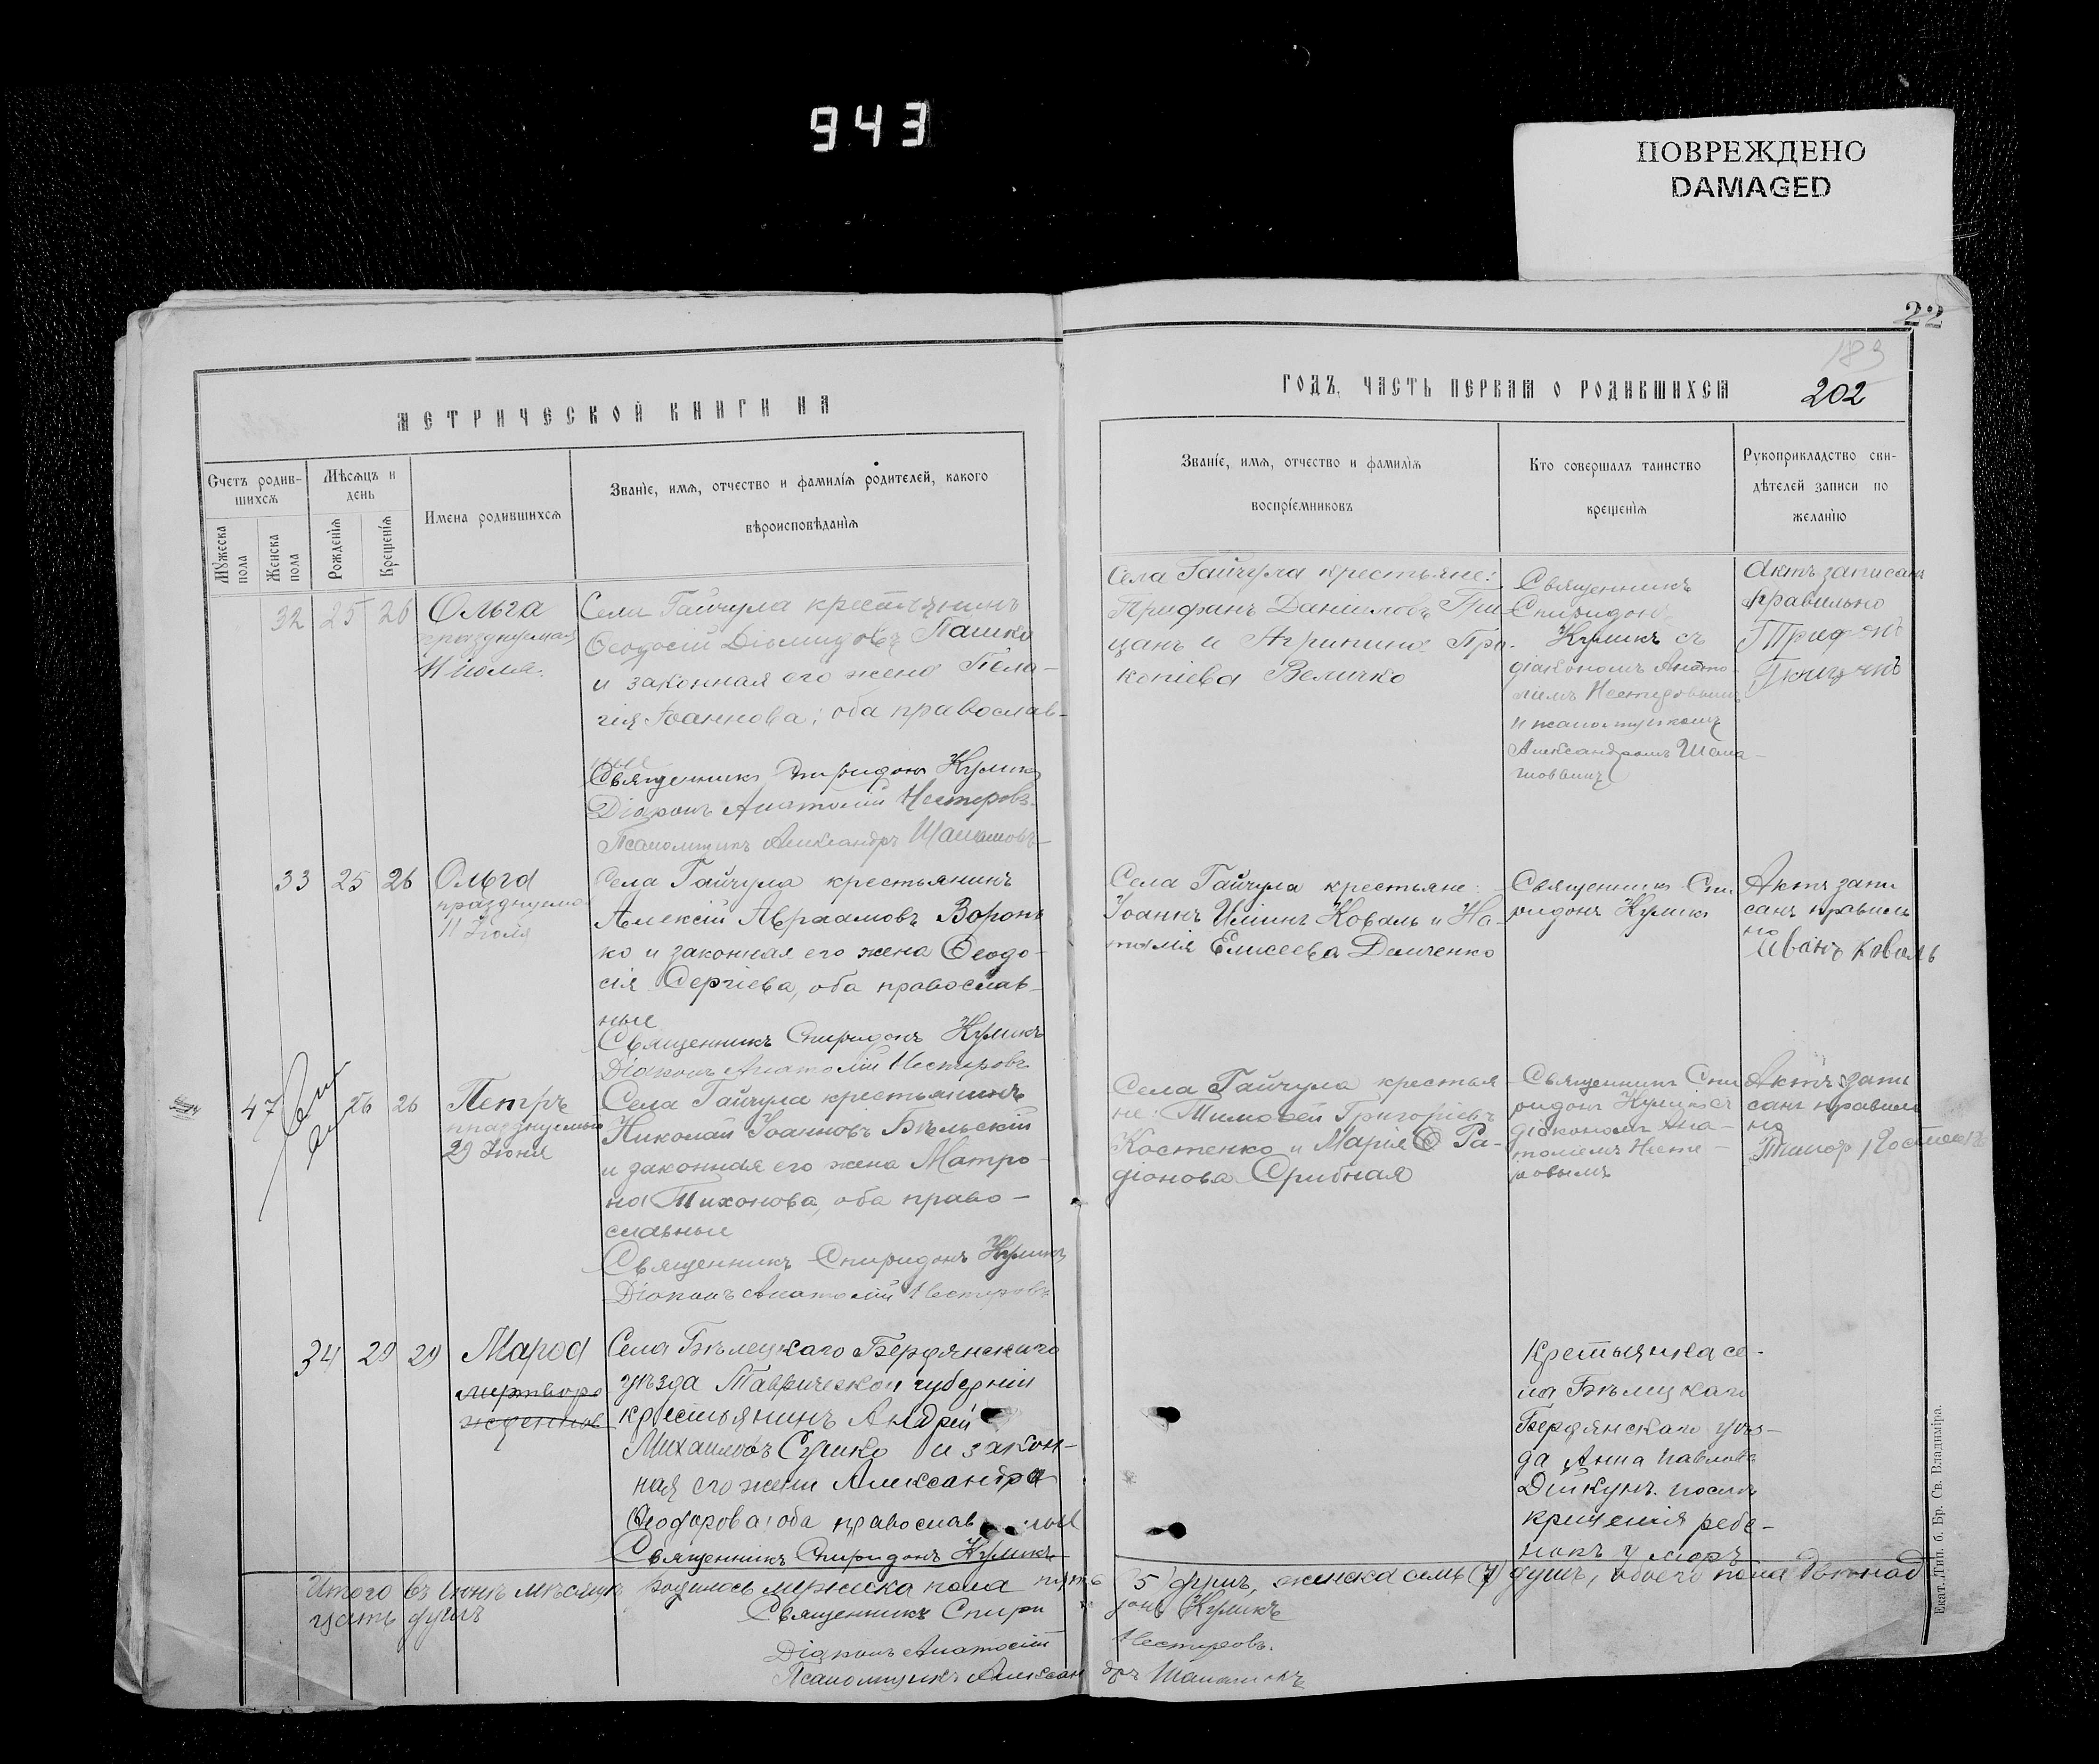 943
ПОВРЕЖДЕНО
DAMAGED
22
183
202
МЕТРИЧЕСКОЙ КНИГИ НА
ГОДЪ, ЧАСТЬ ПЕРВАЯ О РОДИВШИХСЯ
Счетъ родив-
шихся
Мужеска
пола
Женска
пола
Мѣсяцъ и
день
Рожденія
Крещенія
Имена родившихся
Званіе, имя, отчество и фамилія родителей, какого
вѣроисповѣданія
Званіе, имя, отчество и фамилія
воспріемниковъ
Кто совершалъ таинство
крещенія
Рукоприкладство сви-
дѣтелей записи по
желанію
32 25 26
Ольга
празднуемая
11 іюля.
Села Гайчула крестьянинъ
Ѳеодосій Діомидовъ Пашко
и законная его жена Пела-
гія Іоаннова; оба православ-
ные
Священникъ Спиридонъ Куликъ
Діаконъ Анатолій Нестеровъ
Псаломщикъ Александръ
Села Гайчула крестьяне:
Даніиловъ Пи-
цанъ и Агрипина Про-
копіева Величко
Священникъ
Спиридонъ
Куликъ съ
діакономъ Анато-
ліемъ Нестеровымъ
и псаломщикомъ
Александромъ
Актъ записанъ
правильно
33 25 26
Ольга
празднуемая
11 Іюля
Села Гайчула крестьянинъ
Алексій Авраамовъ Ворон
ко и законная его жена Ѳеодо-
сія Сергіева, оба православ-
ные
Священникъ Спиридонъ Куликъ
Діаконъ Анатолій Нестеровъ
Села Гайчула крестьяне:
Іоаннъ Коваль и На-
талія Елисеева Демченко
Священникъ Спи
ридонъ Куликъ
Актъ запи
санъ правиль
но
Иванъ Коваль
47 26 26
Петръ
празднуемый
29 Іюня
Села Гайчула крестьянинъ
Николай Іоанновъ Бѣльскій
и законная его жена Матро-
на Тихонова, оба право-
славные
Священникъ Спиридонъ Куликъ
Діаконъ Анатолій Нестеровъ
Села Гайчула крестья
не: Тимоѳей Григоріевъ
Костенко и Марія Ра-
діонова Срибная
Священникъ Спи
ридонъ Куликъ съ
діакономъ Ана-
толіемъ Несте-
ровымъ
Актъ запи
санъ правиль
но
34 29 29
мертворо
жденная
Села Бѣлецкаго Бердянскаго
уѣзда Таврической губерніи
крестьянинъ Андрей
Михаиловъ Сушко и закон-
ная его жена Александра
Ѳеодорова; оба православные
Священникъ Спиридонъ Куликъ
Крестьянка се-
ла Бѣлецкаго
Бердянскаго уѣз-
да Анна Павлова
Дикунъ. послѣ
крещенія ребе-
нокъ умеръ
Итого въ іюнѣ мѣсяцѣ родилось мужска пола пять 5 душъ, женска семь (7) душъ, обоего пола двѣнад
цать душъ
Священникъ Спиридонъ Куликъ
Діаконъ Анатолій Нестеровъ.
Псаломщикъ Александръ
Екат. Тип. б. Бр. Св. Владиміра.